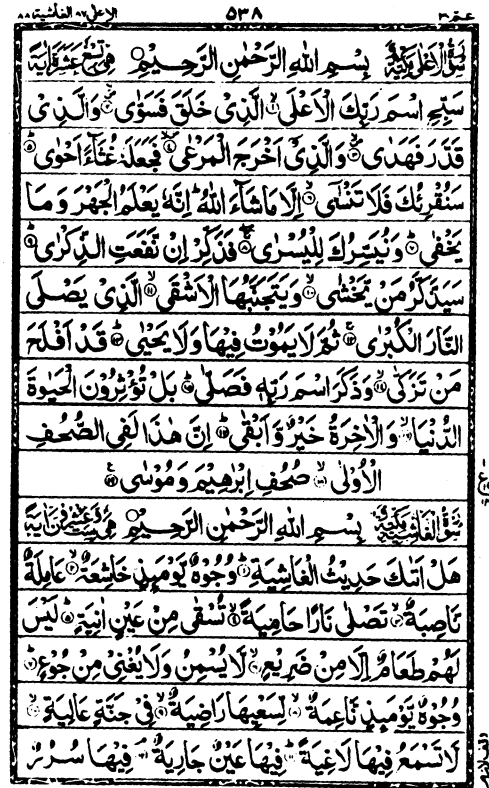 عـمّ ٣٠ ٥٣٨ الاعلى ٨٧ الغاشية ٨٨
سُوْرَةُ الْاَعْلٰى مَكِّيَّةٌ بِسْمِ اللهِ الرَّحْمٰنِ الرَّحِيْمِ
سَبِّحِ اسْمَ رَبِّكَ الْاَعْلَى ۙ﴿۱﴾ الَّذِىْ خَلَقَ فَسَوّٰى ۙ﴿۲﴾ وَالَّذِىْ
قَدَّرَ فَهَدٰى ۙ﴿۳﴾ وَالَّذِىْۤ اَخْرَجَ الْمَرْعٰى ۙ﴿۴﴾ فَجَعَلَهٗ غُثَآءً اَحْوٰى ؕ﴿۵﴾
سَنُقْرِئُكَ فَلَا تَنْسٰٓى ۙ﴿۶﴾ اِلَّا مَا شَآءَ اللهُ ؕ اِنَّهٗ يَعْلَمُ الْجَهْرَ وَمَا
يَخْفٰى ؕ﴿۷﴾ وَنُيَسِّرُكَ لِلْيُسْرٰى ۚ﴿۸﴾ فَذَكِّرْ اِنْ نَّفَعَتِ الذِّكْرٰى ؕ﴿۹﴾
سَيَذَّكَّرُ مَنْ يَّخْشٰى ۙ﴿۱۰﴾ وَيَتَجَنَّبُهَا الْاَشْقَى ۙ﴿۱۱﴾ الَّذِىْ يَصْلَى
النَّارَ الْكُبْرٰى ۚ﴿۱۲﴾ ثُمَّ لَا يَمُوْتُ فِيْهَا وَلَا يَحْيٰى ؕ﴿۱۳﴾ قَدْ اَفْلَحَ
مَنْ تَزَكّٰى ۙ﴿۱۴﴾ وَذَكَرَ اسْمَ رَبِّهٖ فَصَلّٰى ؕ﴿۱۵﴾ بَلْ تُؤْثِرُوْنَ الْحَيٰوةَ
الدُّنْيَا ۖ﴿۱۶﴾ وَالْاٰخِرَةُ خَيْرٌ وَّاَبْقٰى ؕ﴿۱۷﴾ اِنَّ هٰذَا لَفِى الصُّحُفِ
الْاُوْلٰى ۙ﴿۱۸﴾ صُحُفِ اِبْرٰهِيْمَ وَمُوْسٰى ﴿۱۹﴾
سُوْرَةُ الْغَاشِيَةِ مَكِّيَّةٌ بِسْمِ اللهِ الرَّحْمٰنِ الرَّحِيْمِ
هَلْ اَتٰىكَ حَدِيْثُ الْغَاشِيَةِ ؕ﴿۱﴾ وُجُوْهٌ يَّوْمَئِذٍ خَاشِعَةٌ ۙ﴿۲﴾ عَامِلَةٌ
نَّاصِبَةٌ ۙ﴿۳﴾ تَصْلٰى نَارًا حَامِيَةً ۙ﴿۴﴾ تُسْقٰى مِنْ عَيْنٍ اٰنِيَةٍ ؕ﴿۵﴾ لَيْسَ
لَهُمْ طَعَامٌ اِلَّا مِنْ ضَرِيْعٍ ۙ﴿۶﴾ لَّا يُسْمِنُ وَلَا يُغْنِىْ مِنْ جُوْعٍ ؕ﴿۷﴾
وُجُوْهٌ يَّوْمَئِذٍ نَّاعِمَةٌ ۙ﴿۸﴾ لِّسَعْيِهَا رَاضِيَةٌ ۙ﴿۹﴾ فِىْ جَنَّةٍ عَالِيَةٍ ۙ﴿۱۰﴾
لَّا تَسْمَعُ فِيْهَا لَاغِيَةً ؕ﴿۱۱﴾ فِيْهَا عَيْنٌ جَارِيَةٌ ۘ﴿۱۲﴾ فِيْهَا سُرُرٌ